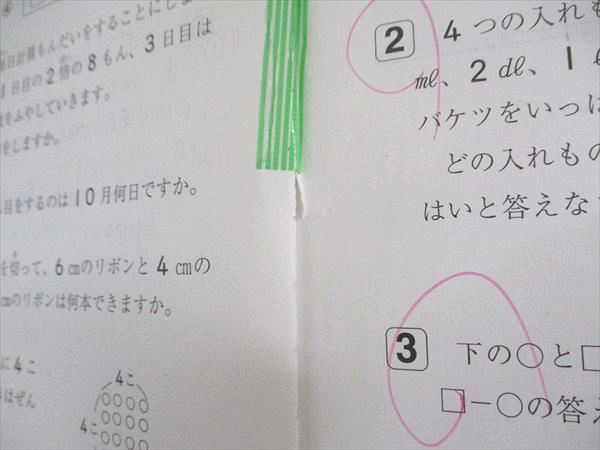 毎日計算もんだいをすることにし
1日目の2倍の8もん、3日目は
をふやしていきます。
をしますか。
目をするのは10月何日ですか。
を切って、6cmのリボンと4cmの
cmのリボンは何本できますか。
に4こ
はぜん
4こ
4こ
2
4つの入れも
mℓ、2dℓ、1ℓ
バケツをいっぱ
どの入れもの
はいと答えな
3
下の○と□
□−○の答え